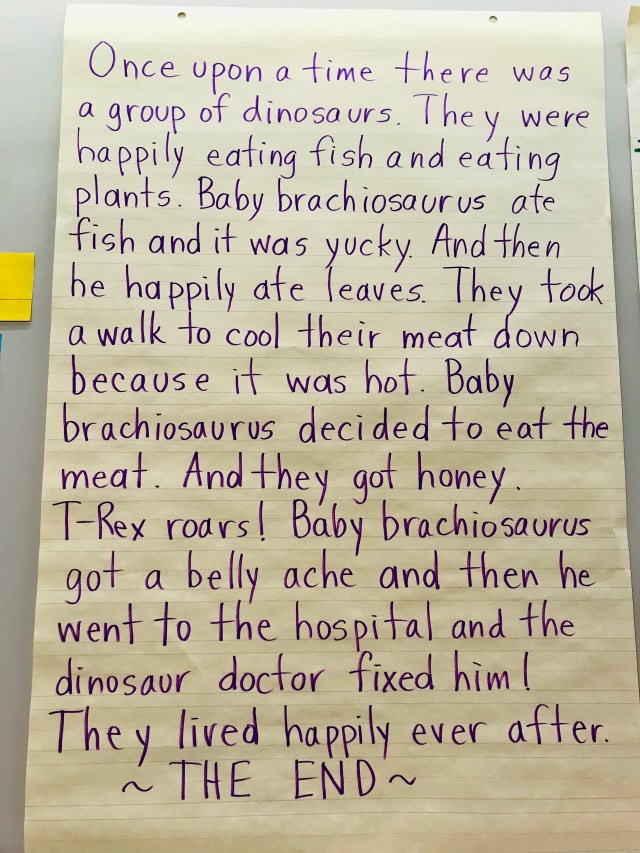 Once upon a time there was
a group of dinosaurs. They were
happily eating fish and eating
plants. Baby brachiosaurus ate
fish and it was yucky. And then
he happily ate leaves. They took
a walk to cool their meat down
because it was hot. Baby
brachiosaurus decided to eat the
meat. And they got honey.
T-Rex roars! Baby brachiosaurus
got a belly ache and then he
went to the hospital and the
dinosaur doctor fixed him!
They lived happily ever after.
~ THE END ~